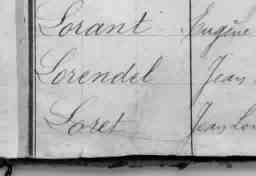 Lorant Eugène
Lorendel Jean
Loret Jean Lou